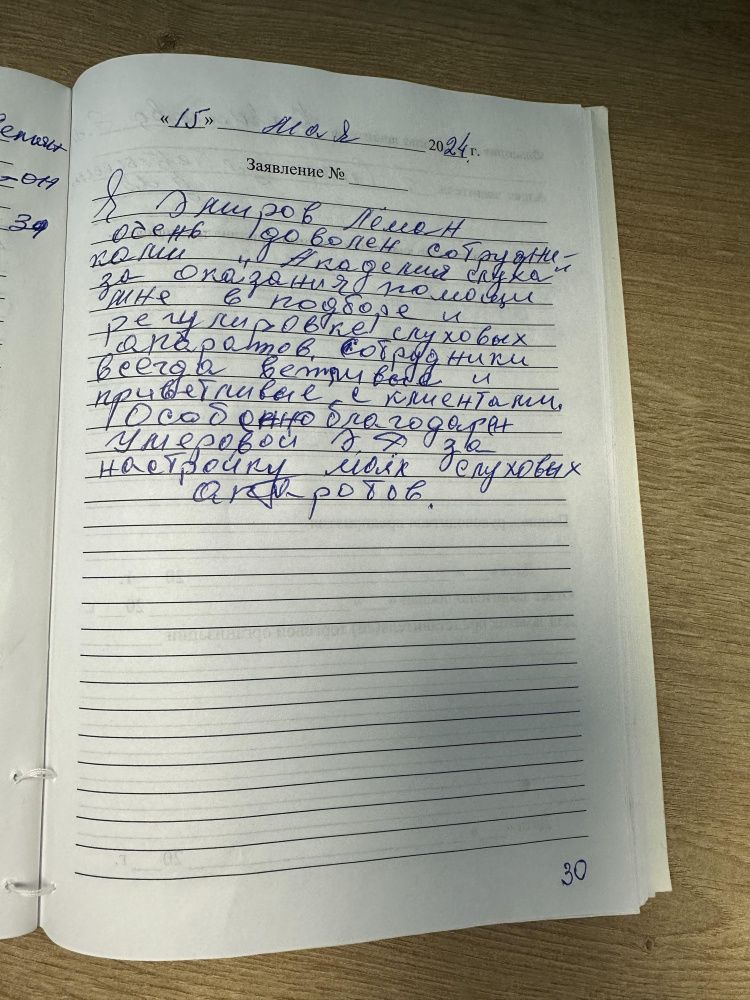 «15» мая 2024 г.
Заявление №
Я Эмиров Лёман
очень доволен сотрудни-
ками „Академия слуха"
за оказания помощи
мне в подборе и
регулировке слуховых
апаратов. Сотрудники
всегда вежливые и
приветливые с клиентами.
Особенно благодарен
Умеровой Э Ф за
настройку моях слуховых
аппаротов.
30